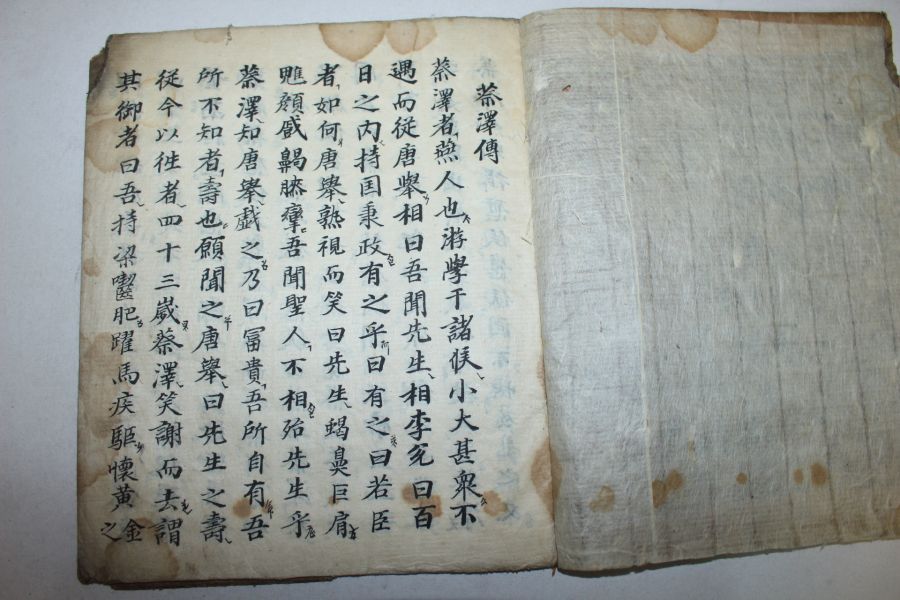 蔡澤傳
蔡澤者燕人也游學干諸侯小大甚衆不
遇而從唐擧相曰吾聞先生相李兌曰百
日之內持囯秉政有之乎曰有之曰若臣
者如何唐擧熟視而笑曰先生蝎鼻巨肩
魋顔戚齃膝攣吾聞聖人不相殆先生乎
蔡澤知唐擧戱之乃曰冨貴吾所自有吾
所不知者壽也願聞之唐擧曰先生之壽
從今以徃者四十三歲蔡澤笑謝而去謂
其御者曰吾持梁齧肥躍馬疾駈懷黃金之